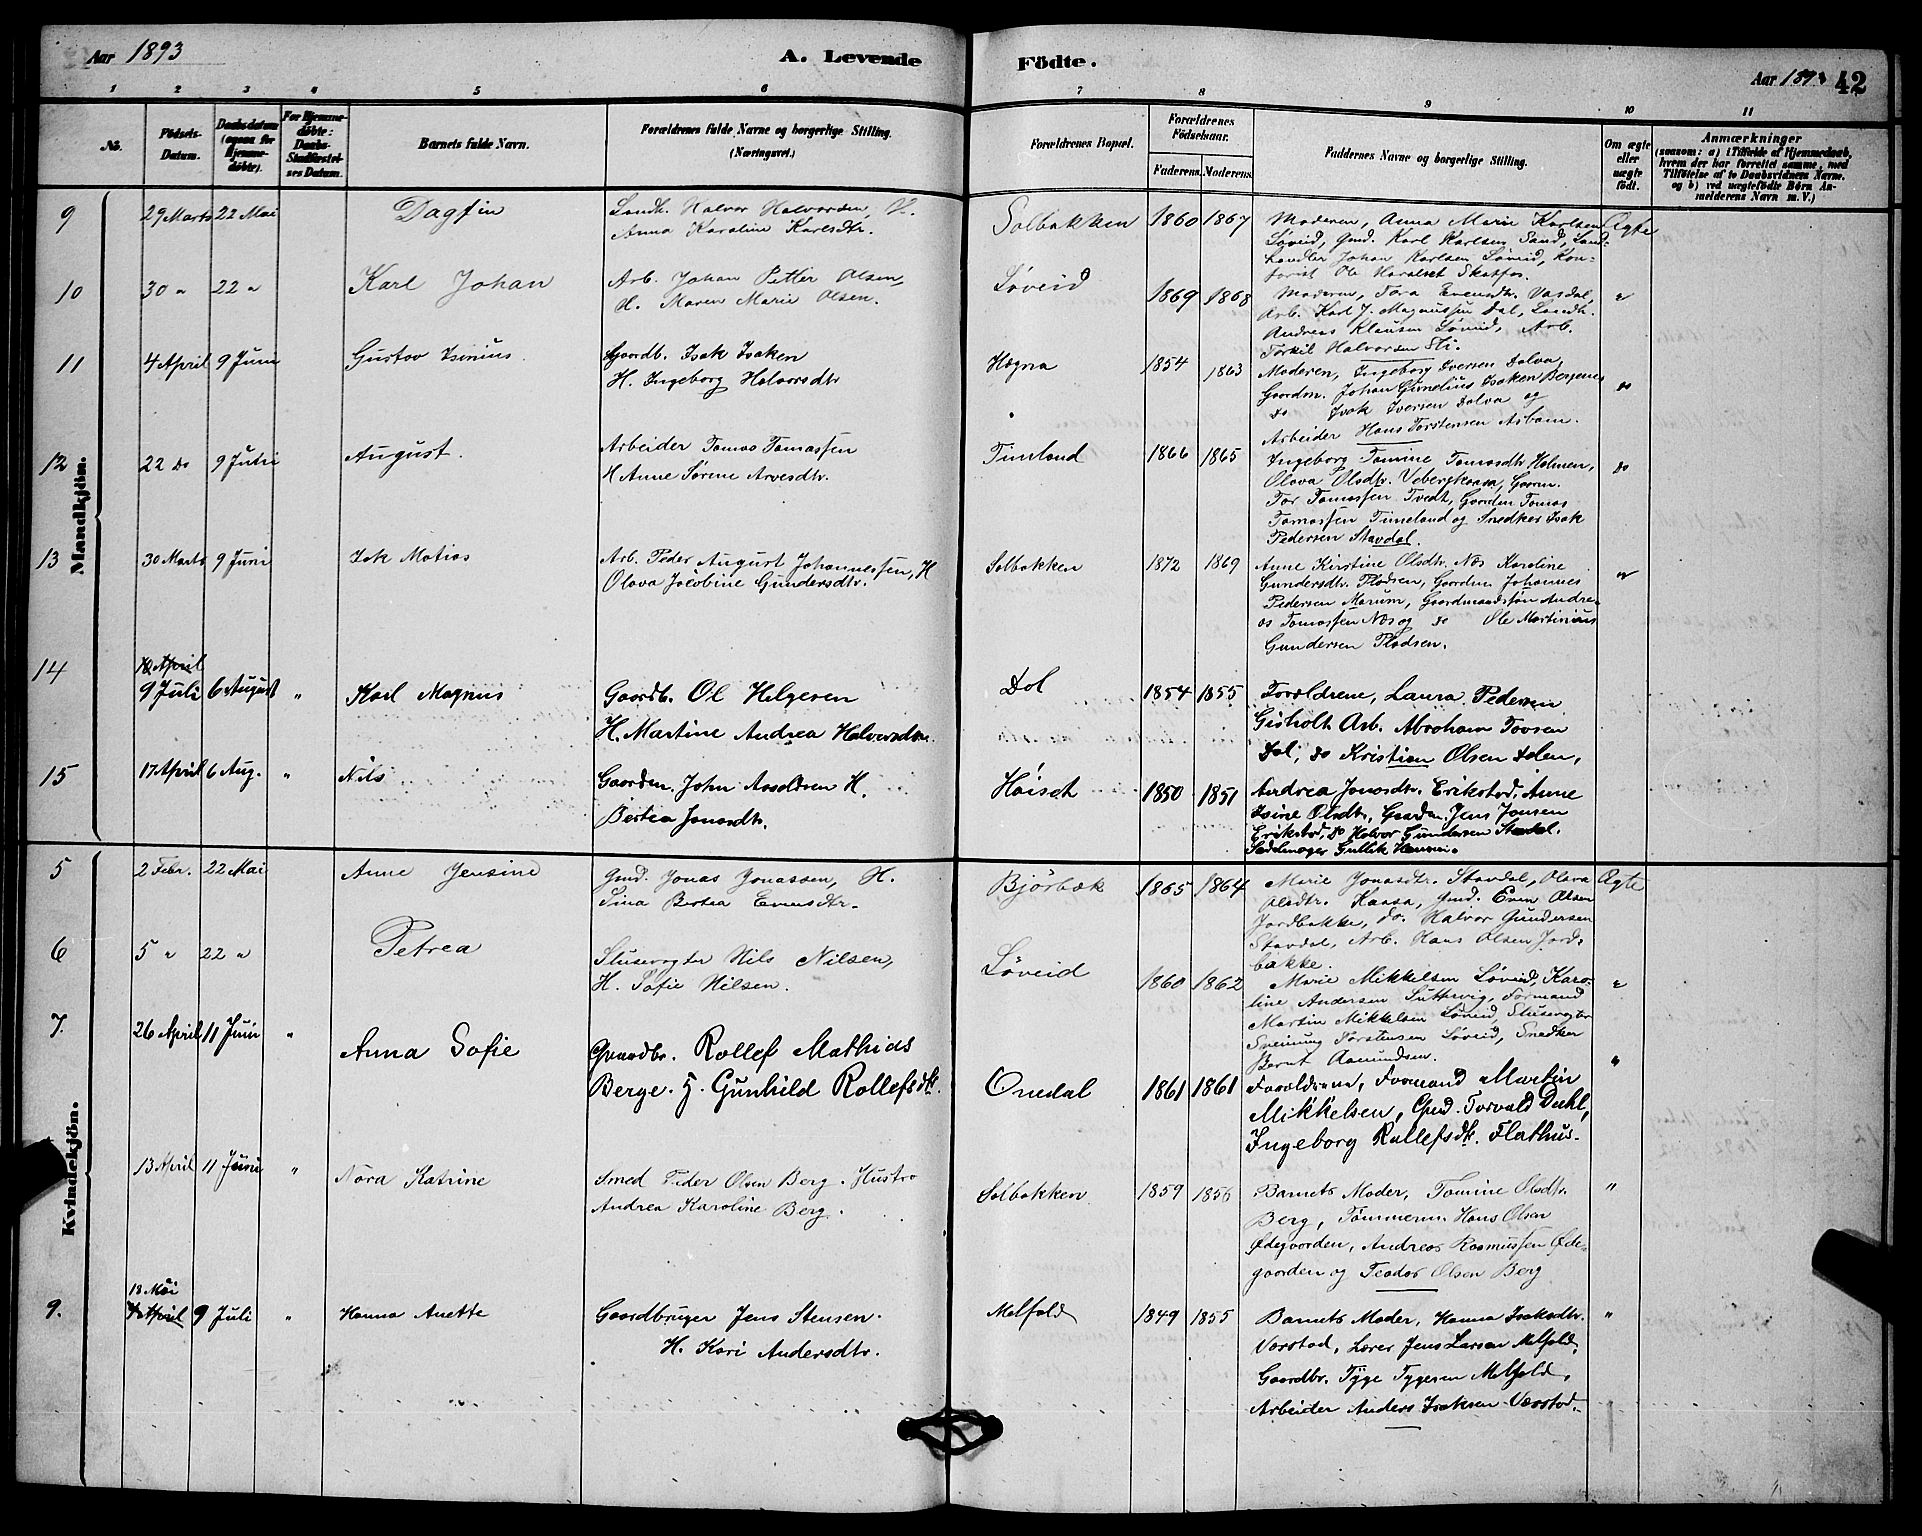 Aar 1893
A. Levende Födte.
Aar 1893
42
1 2 3 4 5 6 7 8 9 10 11
No.
Födsels-Datum.
Daabsdatum (ogsaa for Hjemme-döbte).
For Hjemme-döbte: Daabs-Stadfæstel-ses Datum.
Barnets fulde Navn.
Forældrenes fulde Navne og borgerlige Stilling.
(Næringsvei.)
Forældrenes Bopæl.
Forældrenes Födselsaar.
Faderens. Moderens.
Faddernes Navne og borgerlige Stilling.
Om ægte eller uægte födt.
Anmærkninger
(saasom: a) i Tilfælde af Hjemmedaab, hvem der har forrettet samme, med Tilföielse af to Daabsvidners Navne. og b) ved uægtefödte Börn An-melderens Navn m. V.)
Mandkjön.
9 29 Marts 22 Mai Dagfin
Landh. Halvor Halvorsen, H.
Anna Karoline Karlsdtr.
Solbakken 1860 1867
Moderen, Anna Marie Karlsen
Løveid, Gmd. Karl Karlsen Sand, Land-
handler Johan Karlsen Løveid, Kon-
torist Ole Haralset Skotfos.
Ægte
10 30 " 22 " Karl Johan
Arb. Johan Petter Olsen,
H. Maren Marie Olsen.
Løveid 1869 1868
Moderen, Tora Evensdtr. Vasdal,
Arb. Karl J. Magnussen Dal, Landh.
Andreas Klausen Løveid, Arb.
Torkil Halvorsen Sti.
"
11 4 April 9 Juni Gustav Isinius.
Gaardb. Isak Isaken
H. Ingeborg Halvorsdtr
Hægna 1854 1863
Moderen, Ingeborg Iversen Dalva,
Gaardm. Johan Gunelius Isaken Bergenes
do Isak Iversen Dalva og
Arbeider Hans Torstensen Aasbam.
do
12 22 do 9 Juli August.
Arbeider Tomas Tomassen
H Anne Sørene Arvesdtr.
Timland 1866 1865
Ingeborg Tomine Tomasdtr Holmen,
Olava Olsdtr. Vebergkaasa, Gaardm.
Tor Tomassen Tvedt, Gaardm Tomas
Tomassen Timeland og Snedker Isak
Pedersen Stavdal.
do
13 30 Marts 9 Juni Isak Matias
Arb. Peder August Johannessen, H
Olava Jacobine Gundersdtr.
Solbakken 1872 1869
Anne Kirstine Olsdtr. Næs Karoline
Gundersdtr. Plodsen, Gaardm Johannes
Pedersen Marum, Gaardmandssøn Andre-
as Tomassen Næs og do Ole Martinius
Gundersen Plodsen.
"
14 9 Juli 6 August " Karl Magnus
Gaardb. Ol Helgesen
H. Martine Andrea Halvorsdtr.
Dol 1854 1855
Forældrene, Laura Pedersen
Gisholt Arb. Abraham Tovsen
Dal, do Kristian Olsen Dalen,
15 17 April 6 Aug. " Nils
Gaardm. John Aroldsen H.
Bertea Jonasdtr.
Høiset 1850 1851
Andrea Jonasdtr. Erikstad, Anne
Isine Olsdtr, Gaardm. Jens Jonsen
Erikstad, do Halvor Gundersen Stavdal.
Sadelmager Gullik Hansen.
Kvindekjön.
5 2 Febr. 22 Mai Anne Jensine
Gmd. Jonas Jonassen, H.
Tina Bertea Evensdtr.
Bjørbæk 1865 1864
Marie Jonasdtr. Stavdal, Olava
Olsdtr. Kaasa, Gmd. Even Olsen
Jordbakke, do. Halvor Gundersen
Stavdal, Arb. Hans Olsen Jord-
bakke.
Ægte
6 5 " 22 " Petrea
Slusevogter Nils Nilsen,
H. Sofie Nilsen.
Løveid 1860 1862
Marie Mikkelsen Løveid, Karo-
line Andersen Luthvig, Formand
Martin Mikkelsen Løveid, Slusevogter
Sveinung Torstensen Løveid, Snedker
Bernt Aamundsen.
"
7. 26 April 11 Juni " Anna Sofie
Gaardbr. Rollef Mathias
Berge. H. Gunhild Rollefsdtr.
Omdal 1861 1861
Forældrene, Formand Martin
Mikkelsen, Gmd. Torvald Dahl,
Ingeborg Rollefsdtr. Flathus.
"
13 April 11 Juni " Nora Katrine
Smed Peder Olsen Berg. Hustro
Andrea Karoline Berg.
Solbakken 1859 1856
Barnets Moder, Tomine Olsdtr.
Berg, Tømmerm. Hans Olsen
Ødegaarden, Andreas Rasmussen Øde-
gaarden og Teodor Olsen Berg
"
9. 18 Mai 9 Juli " Hanna Anette
Gaardbruger Jens Stensen.
H. Kari Andersdtr.
Melfald 1849 1855
Barnets Moder, Hanna Isaksdtr.
Værstad, Lærer Jens Larsen Melfald,
Gaardbr. Tyge Tygesen Melfald,
Arbeider Anders Isaksen Værstad.
"